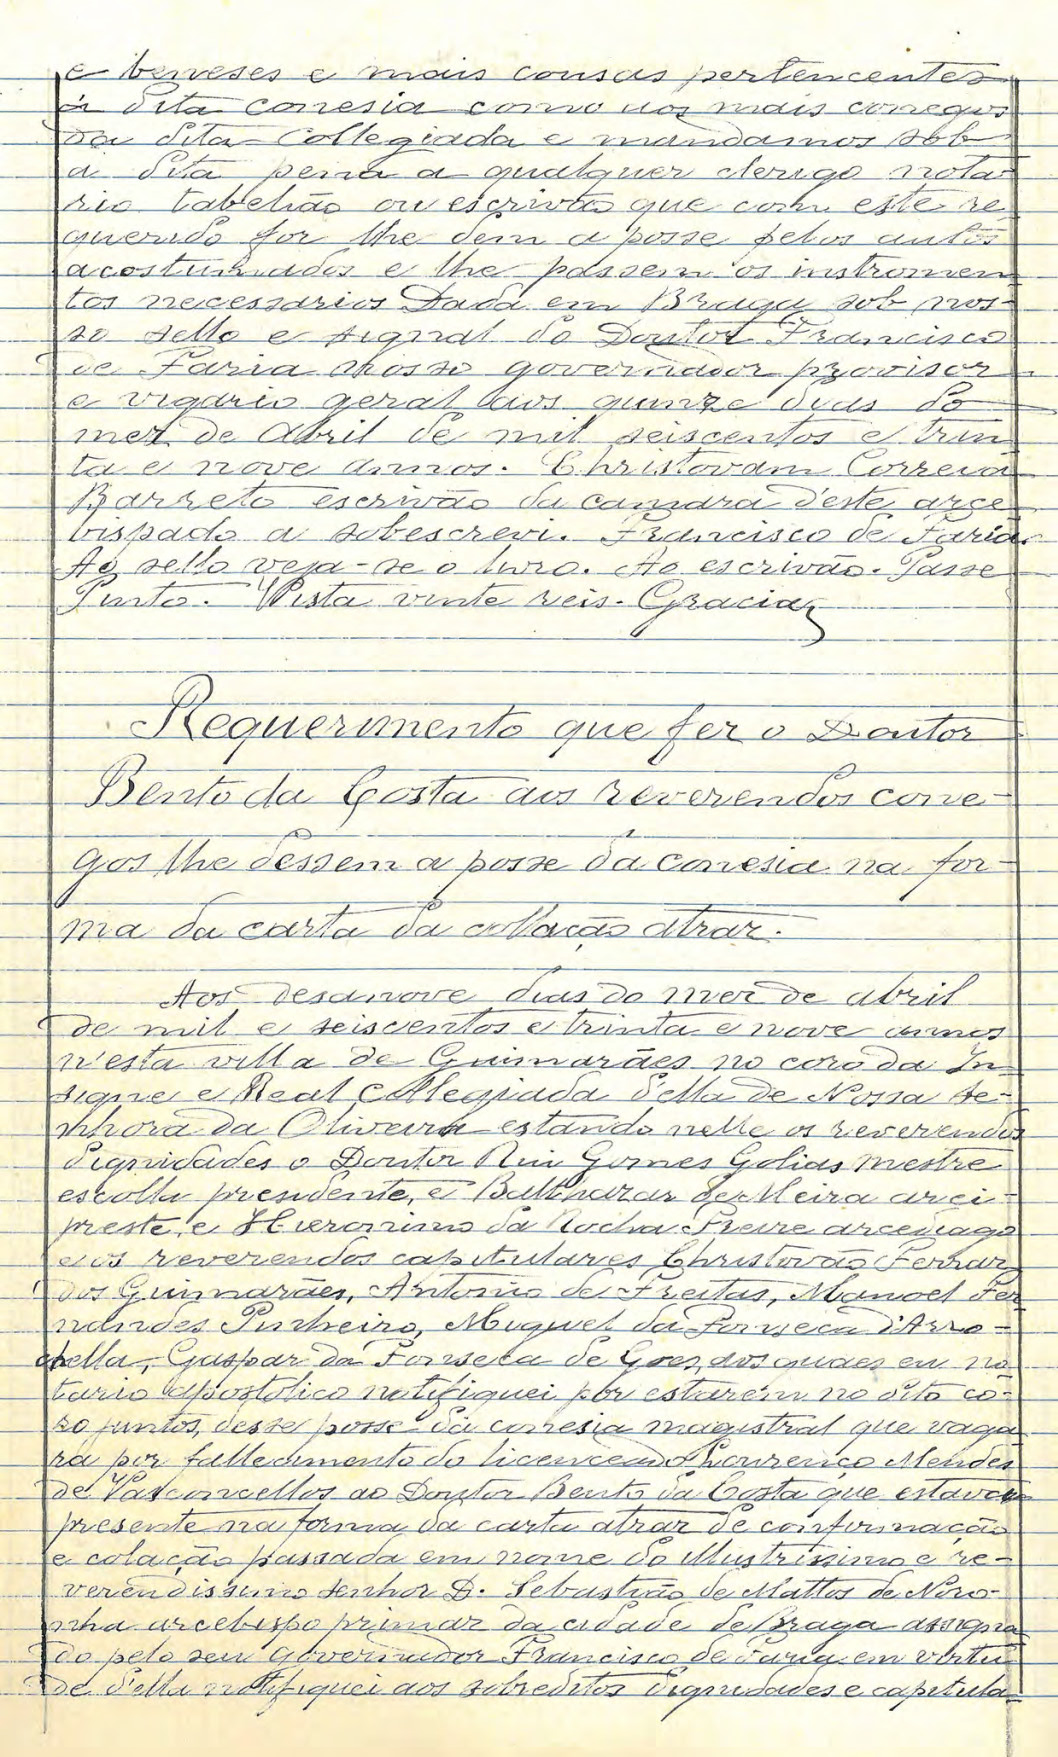 e beneses e mais cousas pertencentes
á dita conesia como aos mais conegos
da dita collegiada e mandamos sob
a dita pena a qualquer clerigo nota-
rio tabelião ou escrivão que com este re
querido for lhe dem a posse pelos autos
acostumados e lhe passem os instromen
tos necessarios Dada em Braga sob nos-
so sello e signal do Doutor Francisco
de Faria nosso governador provisor
e vigario geral aos quinze dyas do
mez de Abril de mil seiscentos e trin
ta e nove annos. Christovam Correia
Barreto escrivão da camara d'este arce
bispado a sobescrevi. Francisco de Faria.
Ao sello veja-se o livro. Ao escrivão. Passe
Pinto. Vista vinte reis. Gracia
Requerimento que fez o Doutor
Bento da Costa aos reverendos cone-
gos lhe dessem a posse da conesia na for-
ma da carta da collação atraz.
Aos desanove dias do mez de abril
de mil e seiscentos e trinta e nove annos
n'esta villa de Guimarães no coro da In-
signe e Real Collegiada d'ella de Nossa Se-
nhora da Oliveira estando nelle os reverendos
dignidades o Doutor Rui Gomes Golias mestre
escolla presidente, e Balthazar de Meira arci-
preste, e Hieronimo da Rocha Freire arcediago
e os reverendos capitulares Christovão Ferraz
dos Guimarães, Antonio de Freitas, Manoel Fer
nandes Pinheiro, Miguel da Fonseca d'Arro-
chella, Gaspar da Fonseca de Goes, aos quaes eu no
tario apostolico notifiquei por estarem no dito co-
ro juntos, desse posse da conesia magistral que vaga
ra por fallecimento do licenceado Lourenço Mendes
de Vasconcellos ao Doutor Bento da Costa que estava
presente na forma da carta atraz de confirmação
e colação passada em nome do Illustrissimo e re-
verendissimo senhor D. Sebastião de Mattos de Noro-
nha arcebispo primaz da cidade de Braga assigna
do pelo seu Governador Francisco de Faria em virtu
de d'ella notifiquei aos sobreditos dignidades e capitula-